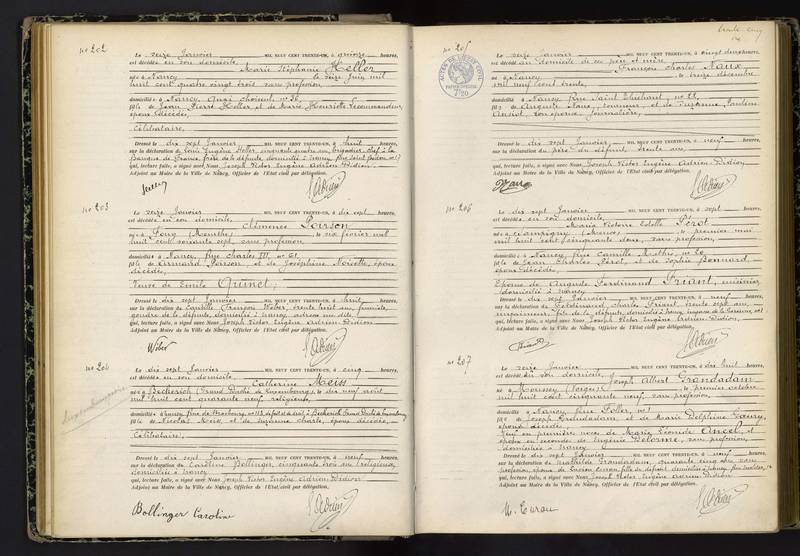 No 202
Le seize Janvier MIL NEUF CENT TRENTE-UN, à quinze heures,
est décédée en son domicile
Marie Stéphanie Heller
née à Nancy le seize Juin mil
huit cent quatre vingt trois sans profession
domiciliée à Nancy, Quai Choiseul, no 36,
fille de Jean Pierre Heller et de Marie Henriette
époux décédés,
Célibataire,
Dressé le dix sept Janvier MIL NEUF CENT TRENTE-UN, à huit heures,
sur la déclaration de Louis Eugène Heller, cinquante quatre ans, brigadier chef à la
Banque de France, frère de la défunte, domicilié à Nancy, rue
qui, lecture faite, a signé avec Nous Joseph Victor Eugène Adrien Didion
Adjoint au Maire de la Ville de Nancy, Officier de l'Etat civil par délégation.
No 203
Le seize Janvier MIL NEUF CENT TRENTE-UN, à dix sept heures,
est décédée en son domicile,
Clémence Poirson
née à Foug (Meurthe) le six février mil
huit cent soixante sept, sans profession
domiciliée à Nancy, rue Charles III, no 61,
fille de Armand Poirson et de Joséphine Noisette, époux
décédés,
Veuve de Emile Quinet,
Dressé le dix sept Janvier MIL NEUF CENT TRENTE-UN, à huit heures,
sur la déclaration de Camille François Weber, trente huit ans,
gendre de la défunte, domicilié à Nancy, même
qui, lecture faite, a signé avec Nous Joseph Victor Eugène Adrien Didion
Adjoint au Maire de la Ville de Nancy, Officier de l'Etat civil par délégation.
Weber
No 204
Le dix sept Janvier MIL NEUF CENT TRENTE-UN, à cinq heures,
est décédée en son domicile,
Catherine Meiss
née à Becherich (Grand Duché de Luxembourg), le dix neuf avril
mil huit cent quarante neuf, religieuse,
domiciliée à Nancy, rue de Strasbourg, no
fille de Nicolas Meiss, et de Suzanne époux décédés,
Célibataire,
Dressé le dix sept Janvier MIL NEUF CENT TRENTE-UN, à neuf heures,
sur la déclaration de Caroline Bollinger, cinquante trois ans, religieuse,
domiciliée à Nancy
qui, lecture faite, a signé avec Nous Joseph Victor Eugène Adrien Didion
Adjoint au Maire de la Ville de Nancy, Officier de l'Etat civil par délégation.
Bollinger Caroline
trente cinq
No 205
Le seize Janvier MIL NEUF CENT TRENTE-UN, à vingt deux heures,
est décédé au domicile de ses père et mère,
François Charles Naux
né à Nancy le treize décembre
mil neuf cent trente,
domicilié à Nancy, rue Saint Thiébaut, no 22,
fils de Auguste Naux, tourneur, et de Suzanne
son épouse, journalière,
Dressé le dix sept Janvier MIL NEUF CENT TRENTE-UN, à neuf heures,
sur la déclaration du père du défunt, trente ans
qui, lecture faite, a signé avec Nous Joseph Victor Eugène Adrien Didion
Adjoint au Maire de la Ville de Nancy, Officier de l'Etat civil par délégation.
No 206
Le dix sept Janvier MIL NEUF CENT TRENTE-UN, à sept heures,
est décédée en son domicile
Marie Victoire Estelle Pérot
née à Champigny le premier mai
mil huit cent cinquante deux, sans profession,
domiciliée à Nancy, rue Camille Mathis, no 20
fille de Jean Charles Pérot, et de Sophie Bonnard,
époux décédés,
Epouse de Auguste Ferdinand Friant,
domiciliée à Nancy
Dressé le dix sept Janvier MIL NEUF CENT TRENTE-UN, à neuf heures,
sur la déclaration de Ferdinand Charles Friant, trente sept ans,
fils de la défunte, domicilié à Nancy,
qui, lecture faite, a signé avec Nous Joseph Victor Eugène Adrien Didion
Adjoint au Maire de la Ville de Nancy, Officier de l'Etat civil par délégation.
No 207
Le seize Janvier MIL NEUF CENT TRENTE-UN, à dix huit heures,
est décédé en son domicile,
Joseph Albert Grandadam
né à Moussey (Vosges) le premier octobre
mil huit cent cinquante neuf, sans profession,
domicilié à Nancy, rue Foller, no 1
fils de Joseph Grandadam, et de Marie Delphine
époux décédés,
Veuf en première noces de Marie Léonide Ancel, et
époux en secondes de Eugénie Delorme, sans profession,
domiciliée à Nancy
Dressé le dix sept Janvier MIL NEUF CENT TRENTE-UN, à neuf heures,
sur la déclaration de Mathilde Grandadam, quarante cinq ans, sans
profession, épouse de fille du défunt, domiciliée à Nancy,
qui, lecture faite, a signé avec Nous Joseph Victor Eugène Adrien Didion
Adjoint au Maire de la Ville de Nancy, Officier de l'Etat civil par délégation.